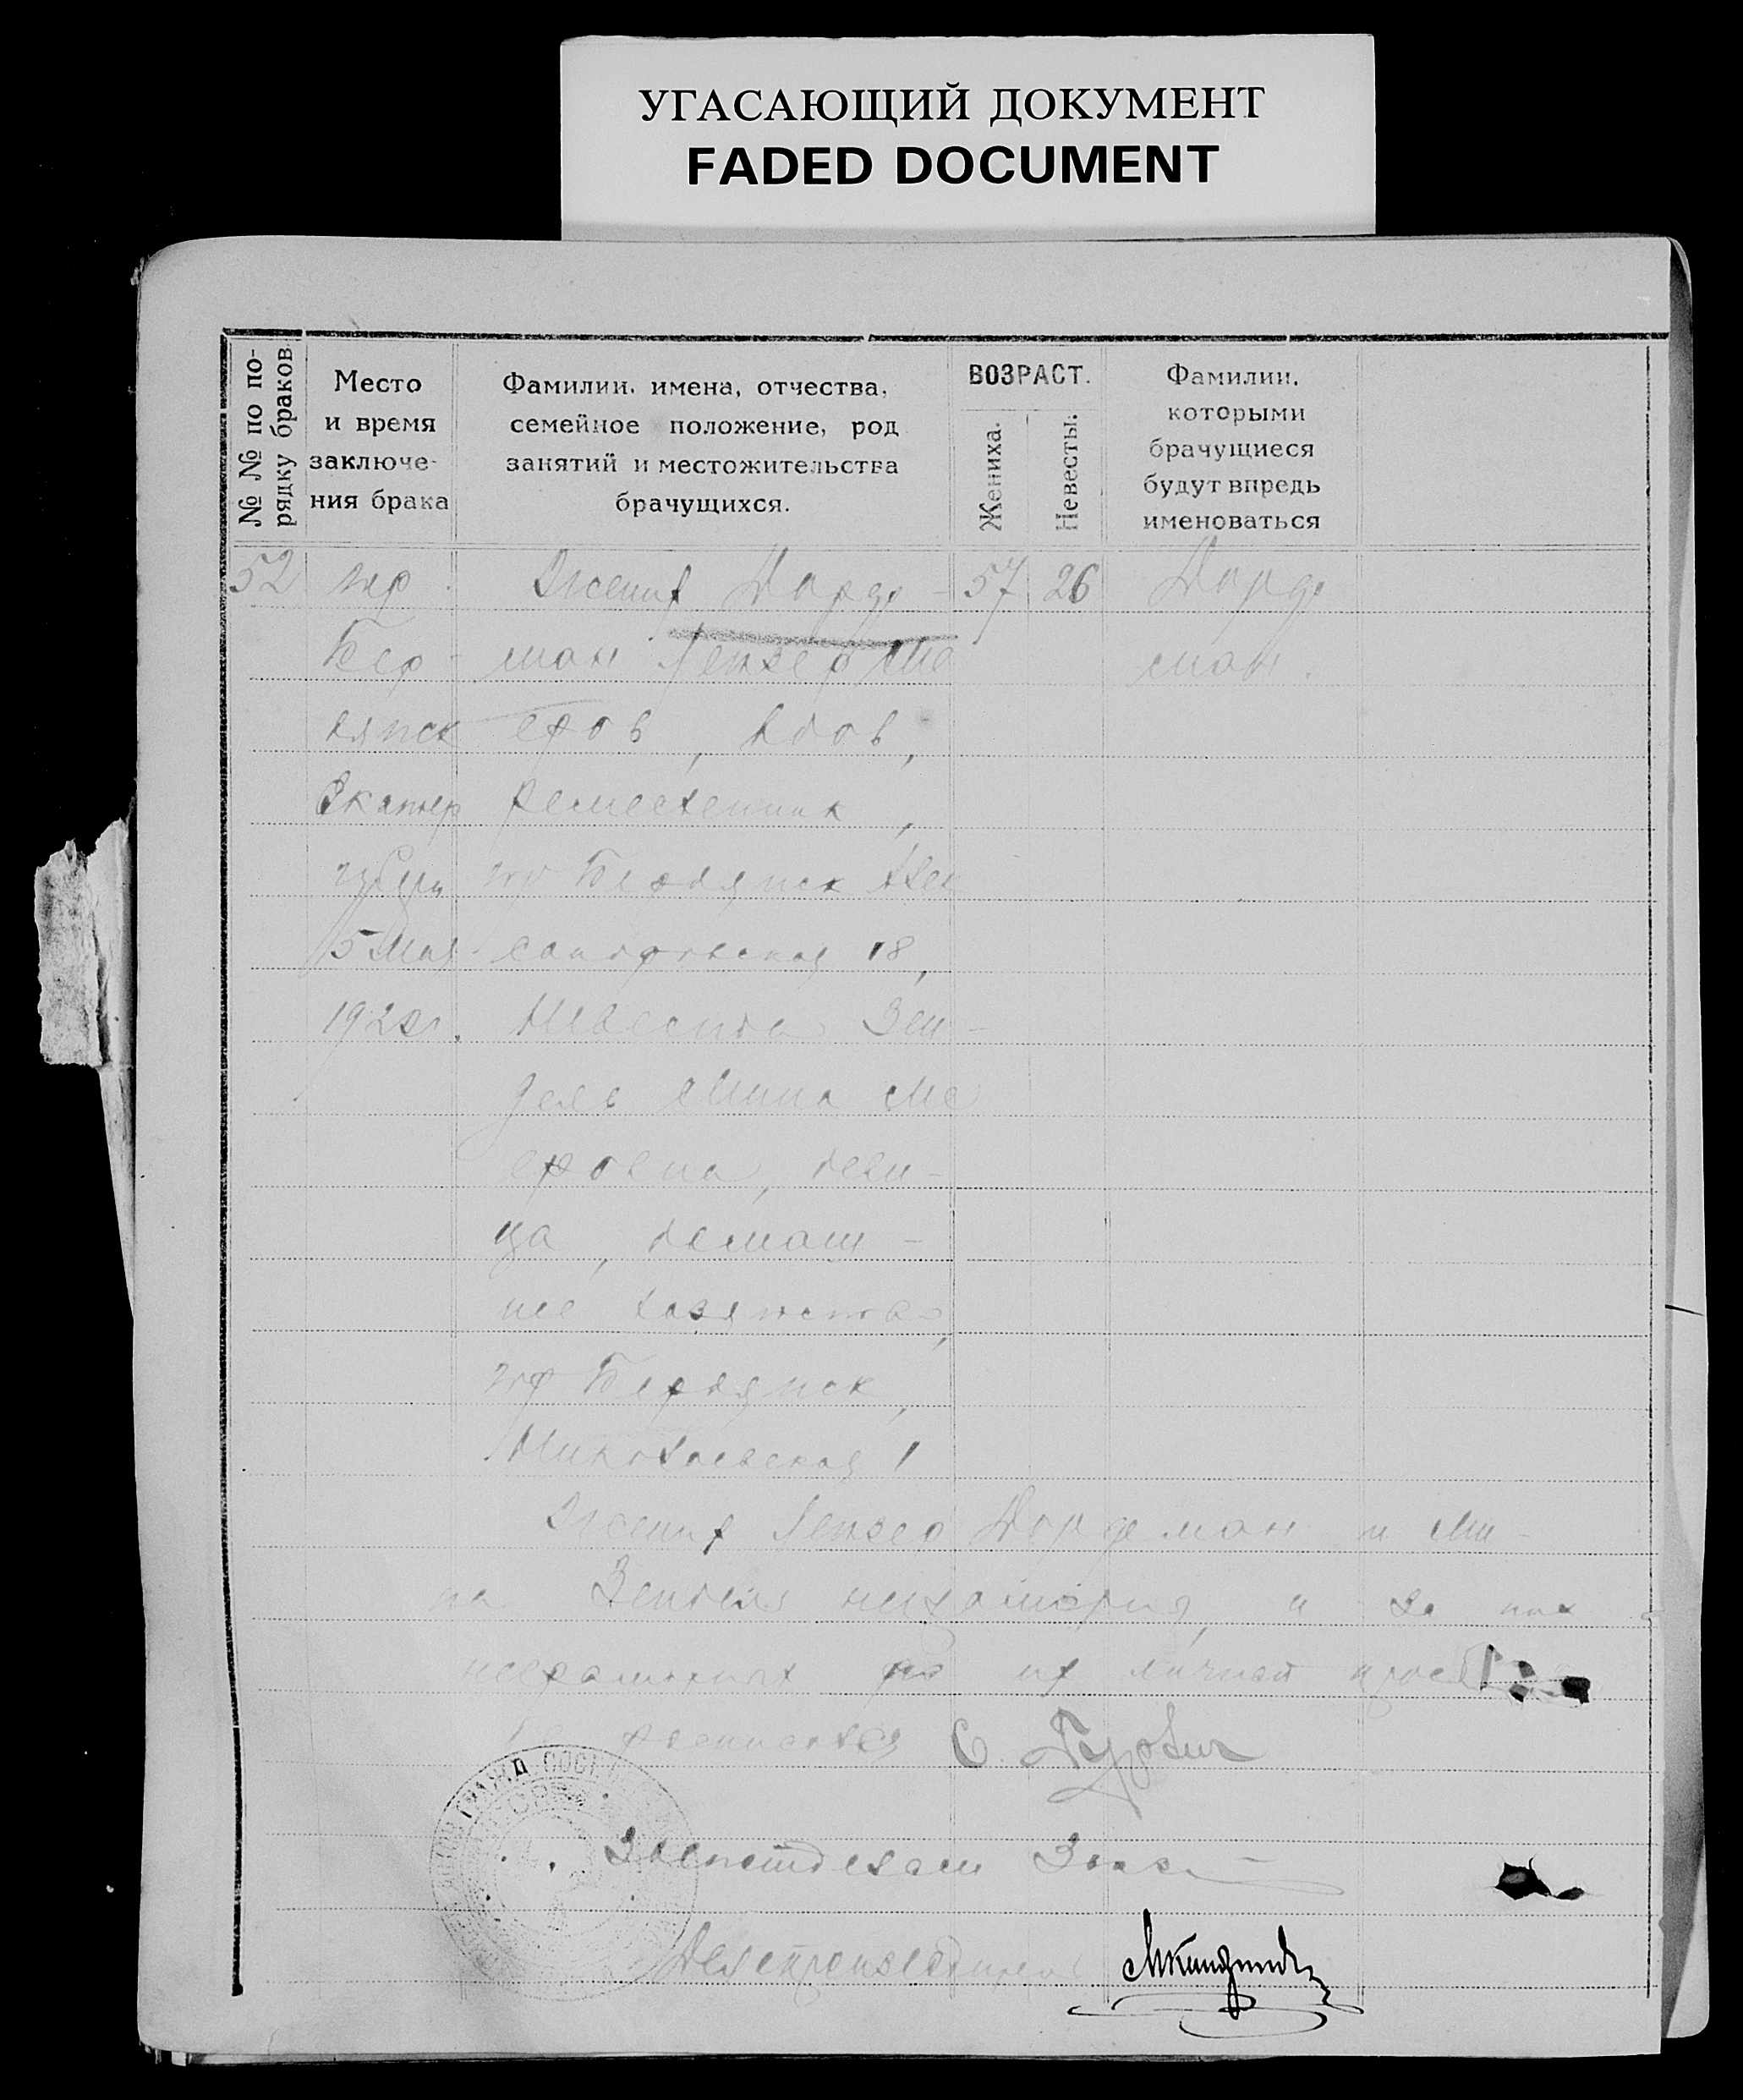 УГАСАЮЩИЙ ДОКУМЕНТ
FADED DOCUMENT
№ № по по-
рядку браков
Место
и время
заключе-
ния брака
Фамилии, имена, отчества,
семейное положение, род
занятий и местожительства
брачущихся.
ВОЗРАСТ.
Жениха.
Невесты.
Фамилии,
которыми
брачущиеся
будут впредь
именоваться
52
гор.
Бер-
дянск
Екатер
губерн
5 Мая
192 г.
Жених Дорде-
ман Лейзер Ме
еров, вдов,
ремесленник,
гор Бердянск Алек
сандровская 18,
Невеста Зен-
дель Мина Ме
еровна, деви-
ца, домаш-
нее хозяйство,
гор Бердянск,
Николаевская 1
57
26
Дорде
ман.
Жених Лейзер Дордеман и Ми-
на Зендель неграмотны, и за них
неграмотных по их личной
росписался С. Гурвич
Завподотделом
Делопроизводитель